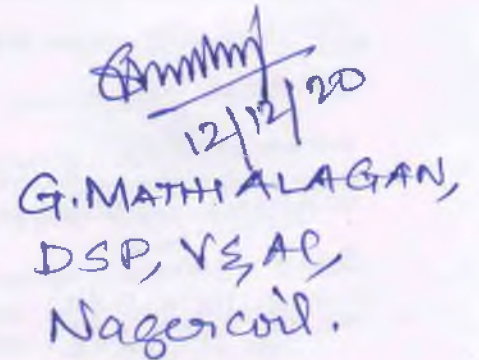 12/12/20
G. MATHIALAGAN,
DSP, V&AC,
Nagercoil.